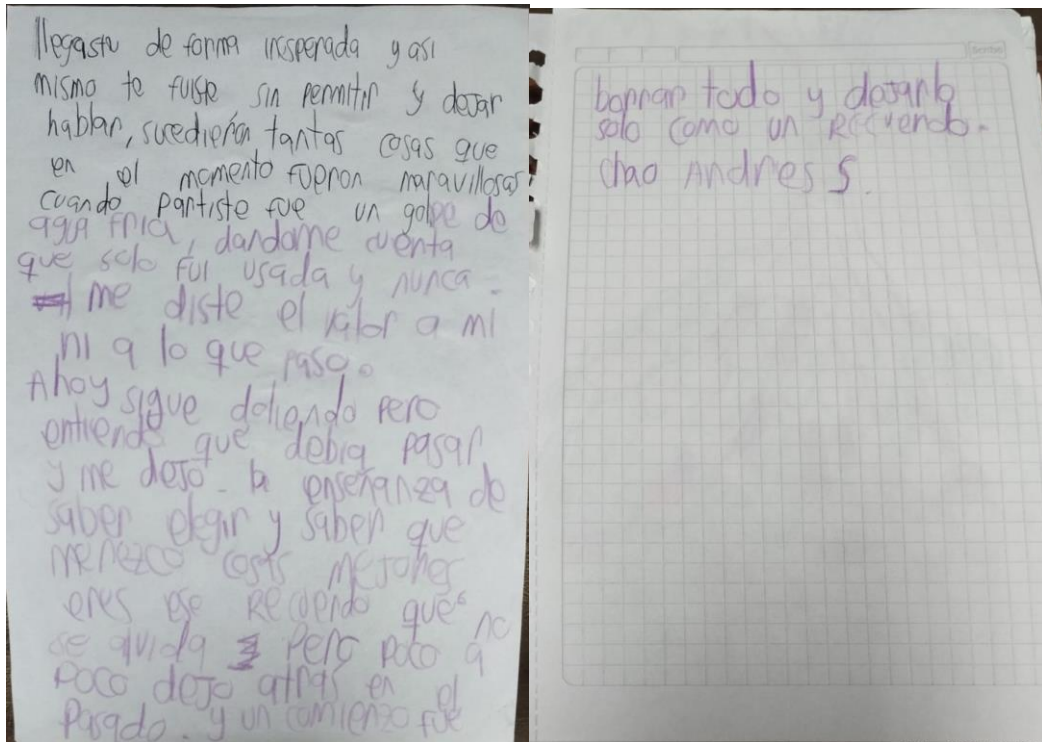 llegaste de forma inesperada y asi
mismo te fuiste sin permitir y dejar
hablar, sucedieron tantas cosas que
en el momento fueron maravillosas
cuando partiste fue un golpe de
agua fria, dandome cuenta
que solo fui usada y nunca
me diste el valor a mi
ni a lo que paso.
Ahoy sigue doliendo pero
entiendo que debia pasar
y me dejo la enseñanza de
saber elegir y saber que
merezco cosas mejores
eres ese recuerdo que no
se olvida pero poco a
poco dejo atras en el
pasado. y un comienzo fue
Scribe
borrar todo y dejarlo
solo como un recuerdo.
chao Andres S.